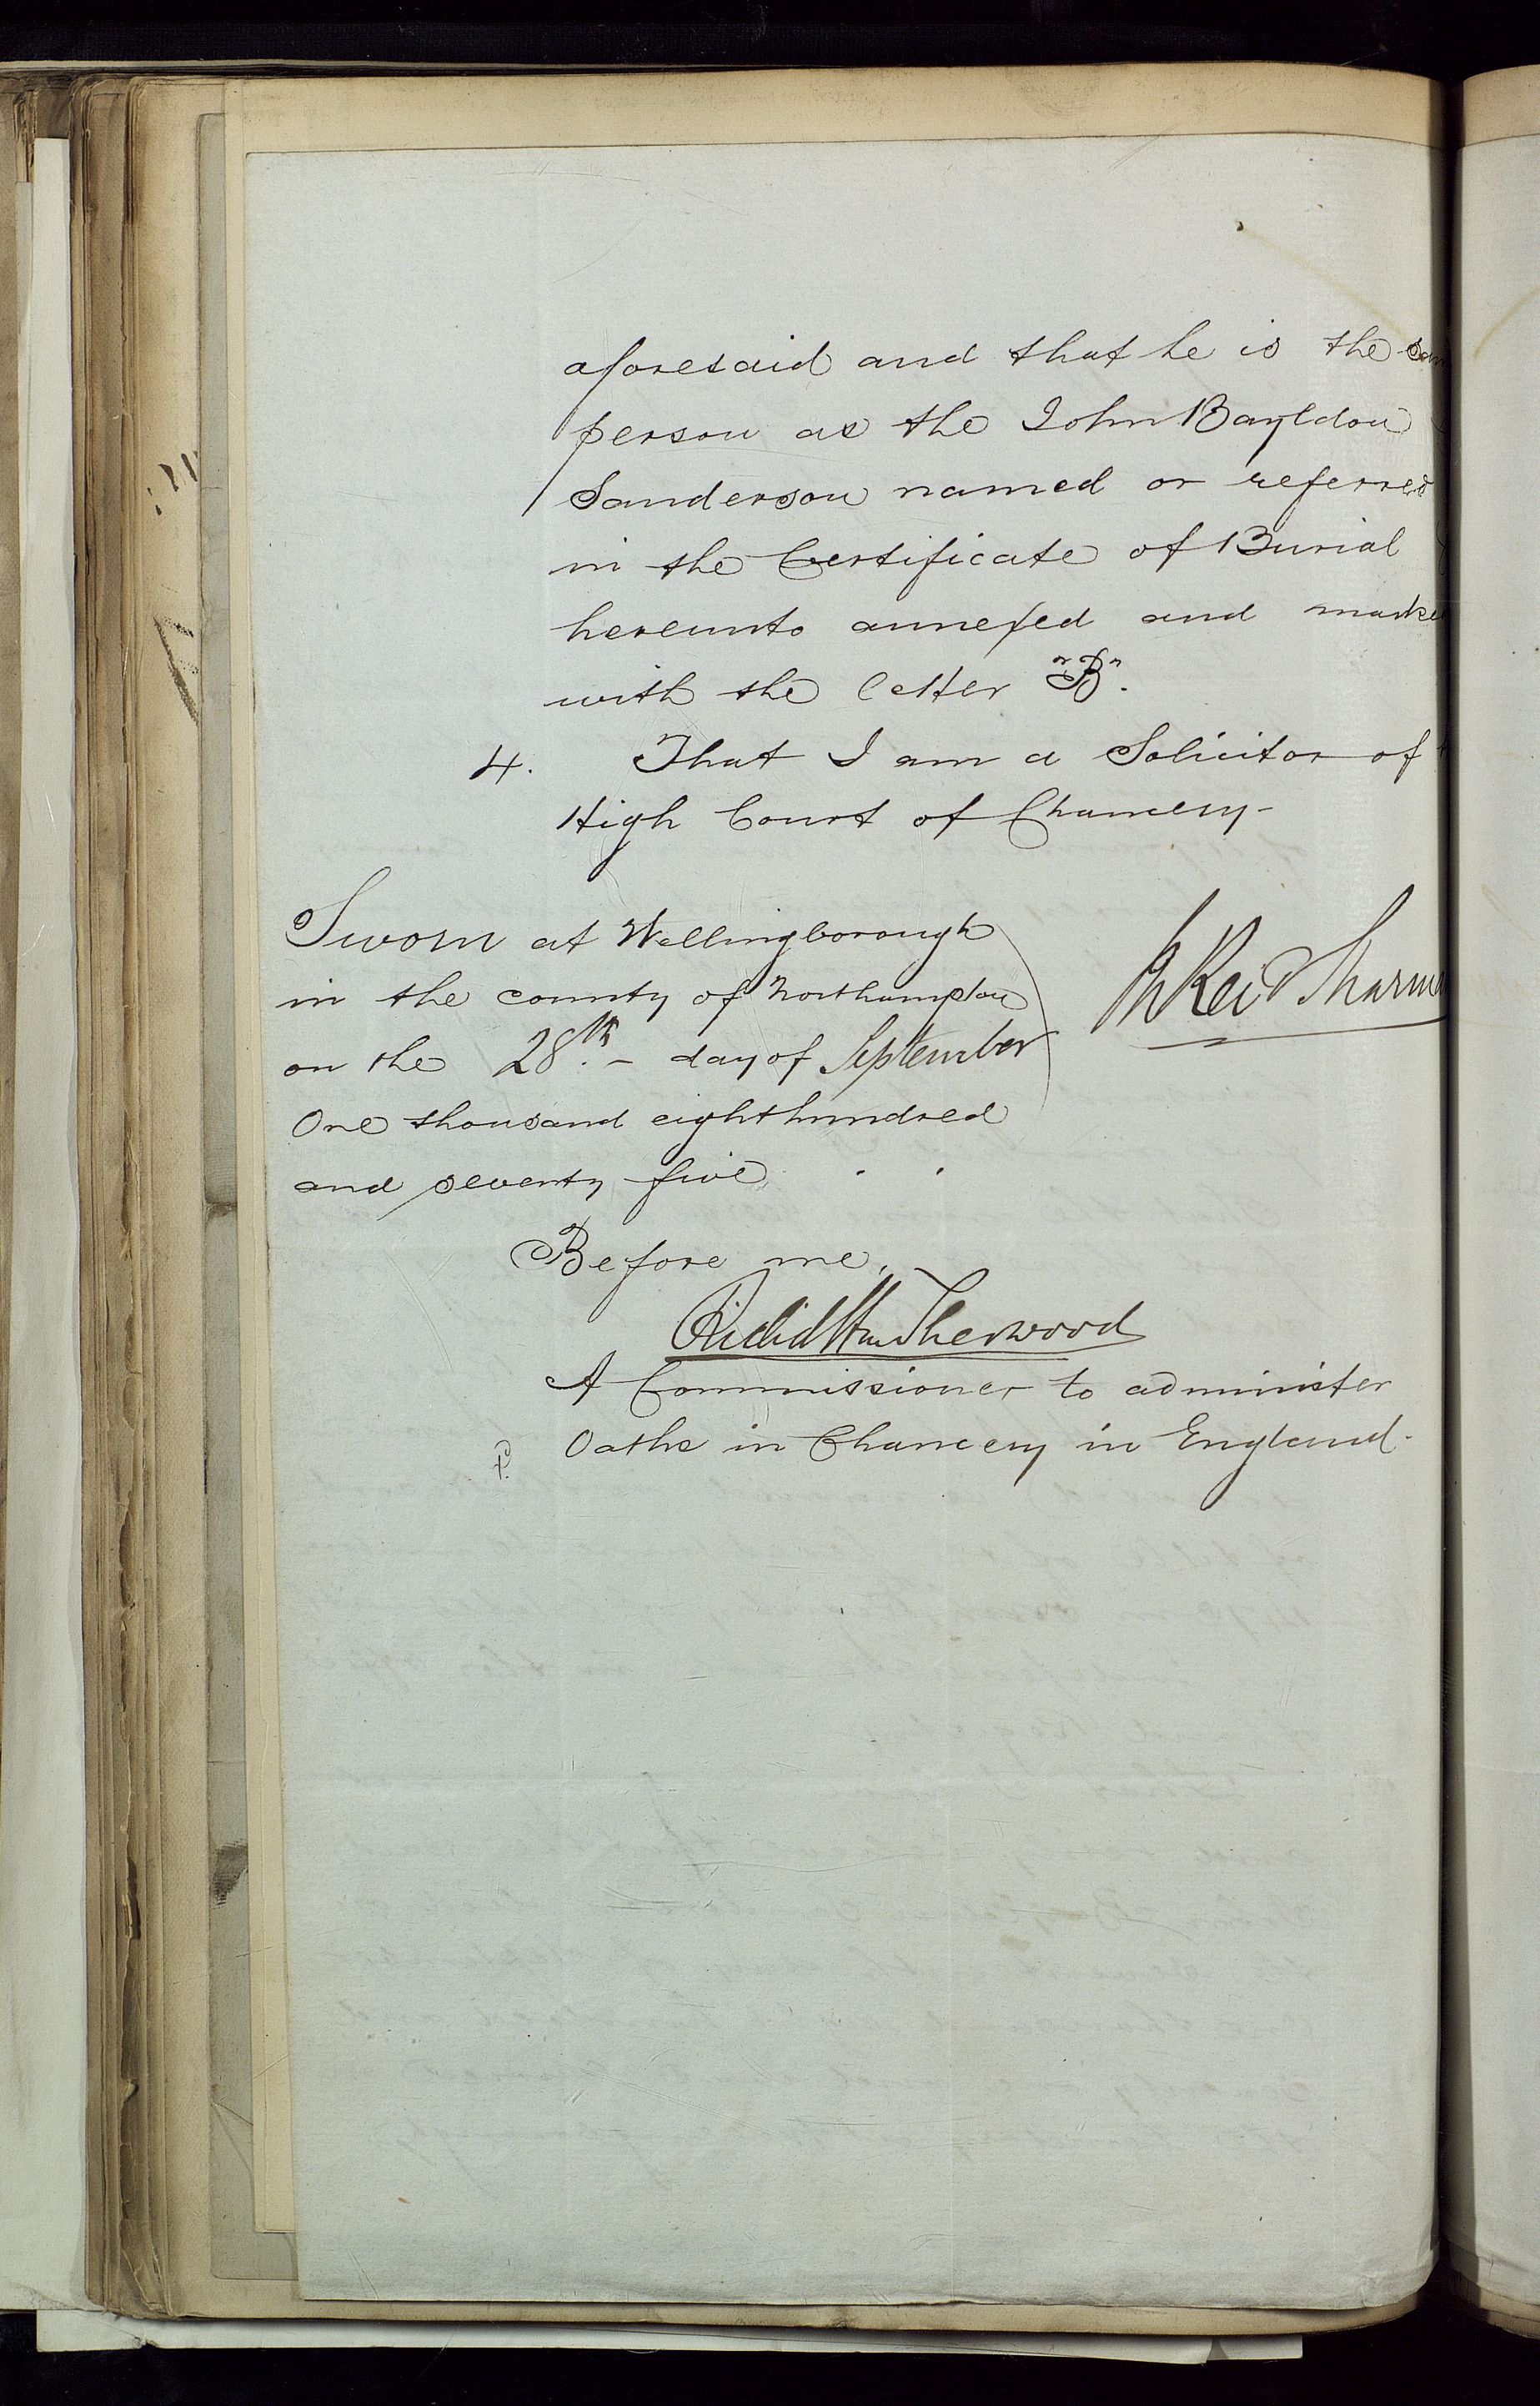 aforesaid and that he is the sam
person as the John Bayldon
Sanderson named or referred
in the Certificate of Burial
hereunto annexed and marke
with the letter "B".
4. That I am a Solicitor of
High Court of Chancery
Sworn at Wellingborough
in the county of Northampton
on the 28th day of September
One thousand eight hundred
and seventy five
Before me,
Sherwood
A Commissioner to administer
Oaths in Chancery in England.